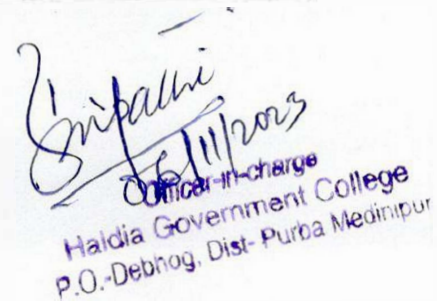 06/11/2023
Officer-in-charge
Haldia Government College
P.O.-Debhog, Dist- Purba Medinipur